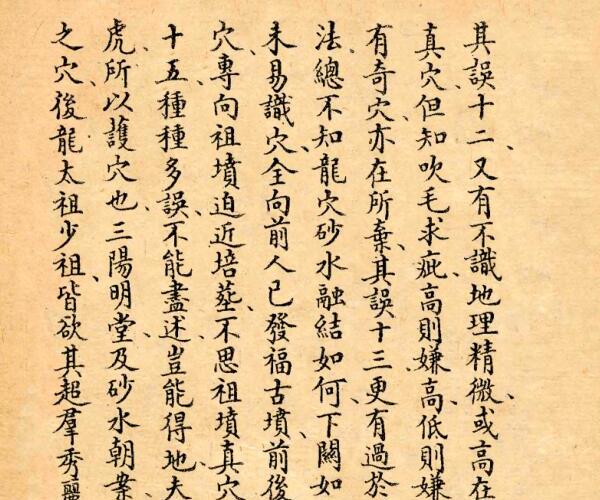 其誤十二、又有不識地理精微、或高在
真穴、但知吹毛求疵、高則嫌高、低則嫌
有奇穴、亦在所棄、其誤十三、更有過於
法、總不知龍穴砂水融結如何、下關如
未易識穴、全向前人已發福古墳、前後
穴、專向祖墳迫近培塟、不思祖墳真穴
十五、種種多誤、不能盡述、豈能得地、夫
虎、所以護穴也、三陽明堂、及砂水朝案
之穴、後龍太祖少祖、皆欲其超羣秀麗